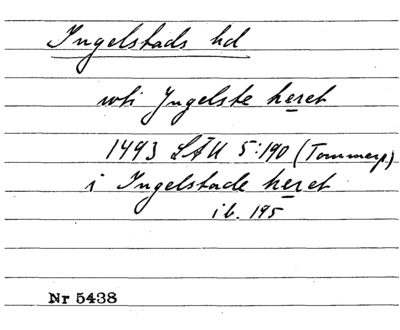 Ingelstads hd
wti Jngelste heret
1493 LÄU 5:190 (Tommerp.)
i Ingelstade heret
ib. 195
Nr 5438